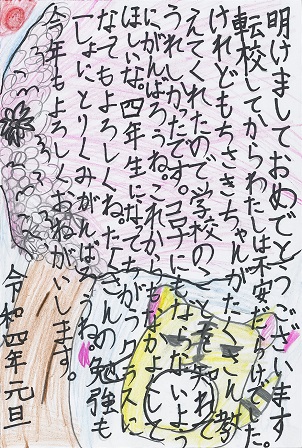 明けましておめでとうございます
転校してからわたしは不安だらけでした。
けれどもちさきちゃんがたくさん教
えてくれたので学校のことを知れて
うれしかったです。コロナにもならないよう
にがんばろうね。これからもなかよくして
ほしいな。四年生になってちがうクラスに
なってもよろしくね。たくさんの勉強も
いっしょにとりくみがんばろうね。
今年もよろしくおねがいします。
令和四年元旦